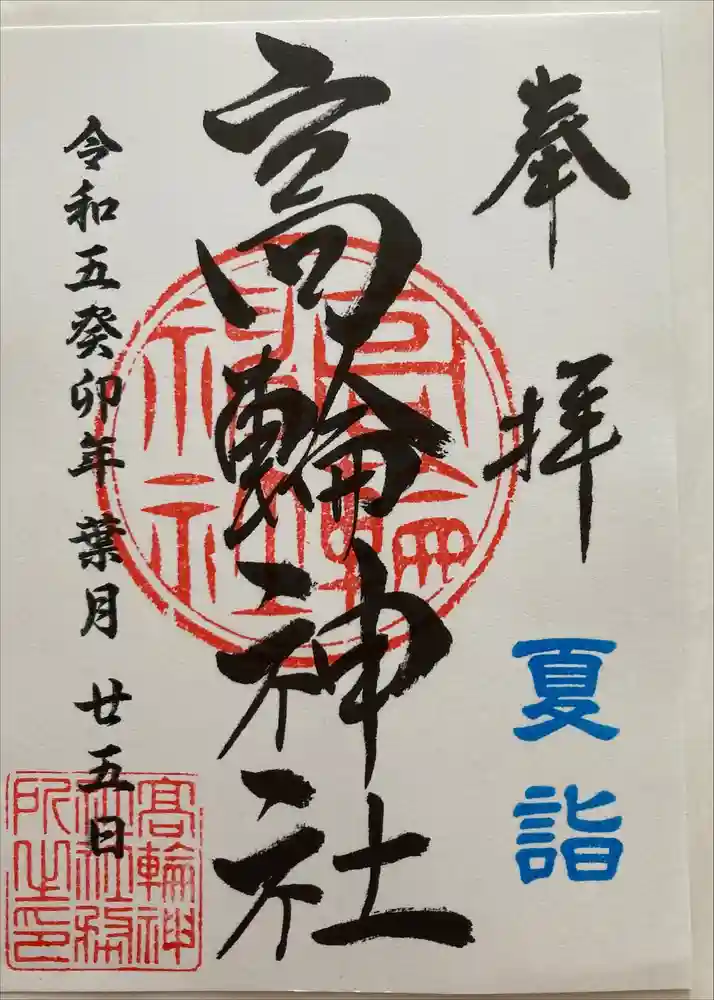 奉拝
夏詣
高輪神社
令和五癸卯年 葉月 廿五日
高輪神社
髙輪神
社社務
所之印